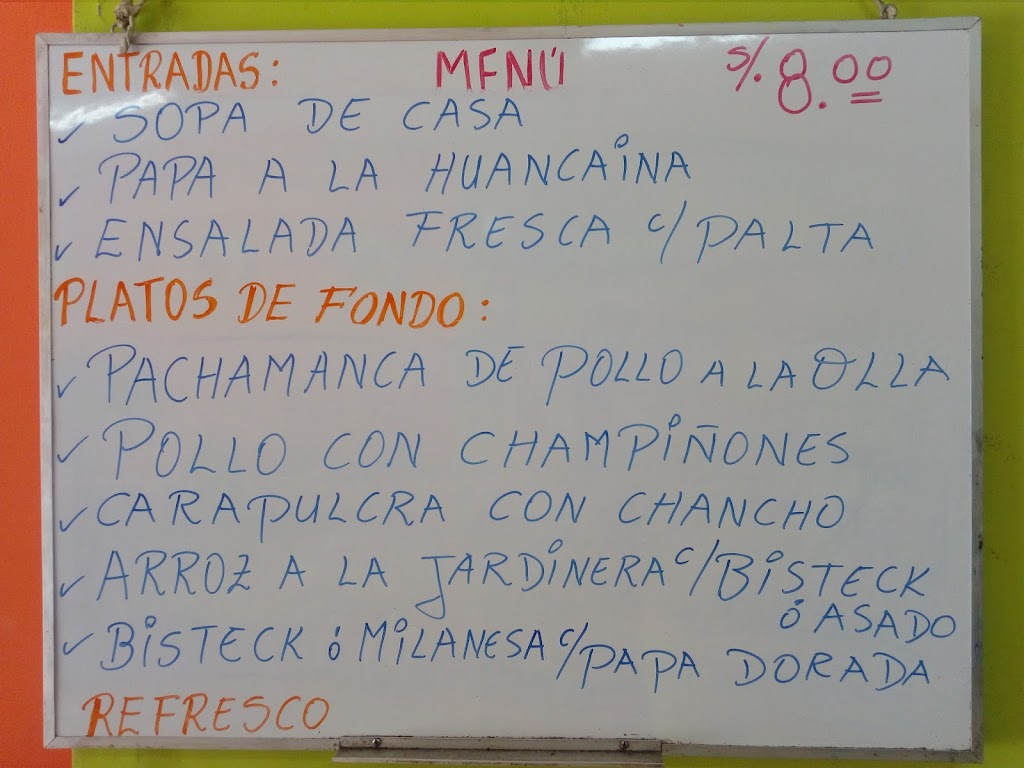 ENTRADAS: MENÚ S/. 8.00
✓ SOPA DE CASA
✓ PAPA A LA HUANCAINA
✓ ENSALADA FRESCA c/ PALTA
PLATOS DE FONDO:
✓ PACHAMANCA DE POLLO A LA OLLA
✓ POLLO CON CHAMPIÑONES
✓ CARAPULCRA CON CHANCHO
✓ ARROZ A LA JARDINERA c/ BISTECK
ó ASADO
✓ BISTECK ó MILANESA c/ PAPA DORADA
REFRESCO